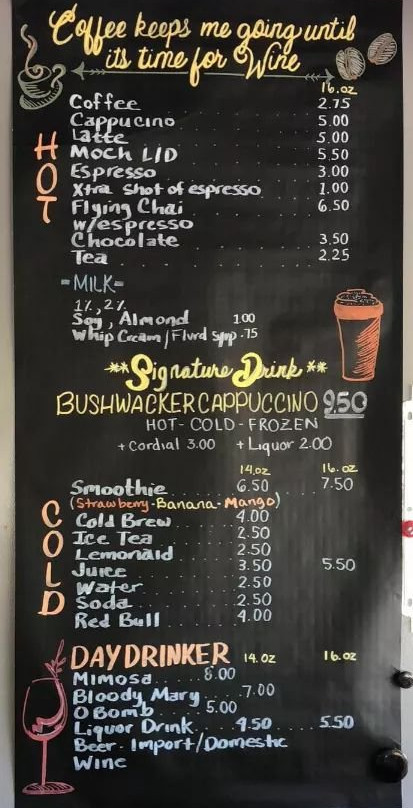 Coffee keeps me going until
its time for Wine
16.oz
Coffee 2.75
Cappucino 5.00
Latte 5.00
Moch L/D 5.50
Espresso 3.00
Xtra shot of espresso 1.00
Flying Chai 6.50
w/espresso
Chocolate 3.50
Tea 2.25
HOT
=MILK=
1%, 2%
Soy, Almond 100
Whip Cream/Flvrd syrp .75
**Signature Drink**
BUSHWACKER CAPPUCCINO 9.50
HOT-COLD-FROZEN
+Cordial 3.00 +Liquor 2.00
14.oz 16.oz
Smoothie 6.50 7.50
(Strawberry-Banana-Mango)
Cold Brew 4.00
Ice Tea 2.50
Lemonaid 2.50
Juice 3.50 5.50
Water 2.50
Soda 2.50
Red Bull 4.00
COLD
DAYDRINKER 14.oz 16.oz
Mimosa 8.00
Bloody Mary 7.00
O Bomb 5.00
Liquor Drink 4.50 5.50
Beer-Import/Domestic
Wine